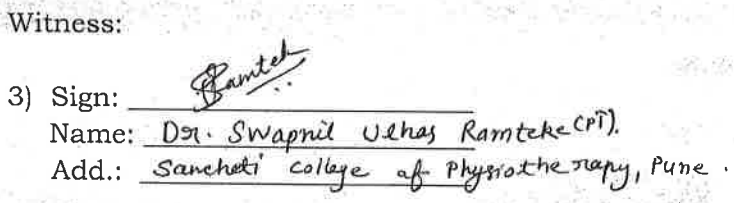 Witness:
3) Sign: Ramtek
Name: Dr. Swapnil Ulhas Ramteke (PT).
Add.: Sancheti college of Physiotherapy, Pune.